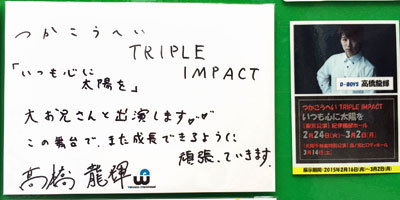 つかこうへい
TRIPLE
IMPACT
「いつも心に
太陽を」
大お兄さんと出演します♡♡
この舞台で、また成長できるように
頑張っていきます。
高橋龍輝
D-BOYS 高橋龍輝
つかこうへい TRIPLE IMPACT
いつも心に太陽を
2月24日(火)〜3月2日(月)
3月14日(土)
展示期間:2015年2月16日(月)〜3月2日(月)